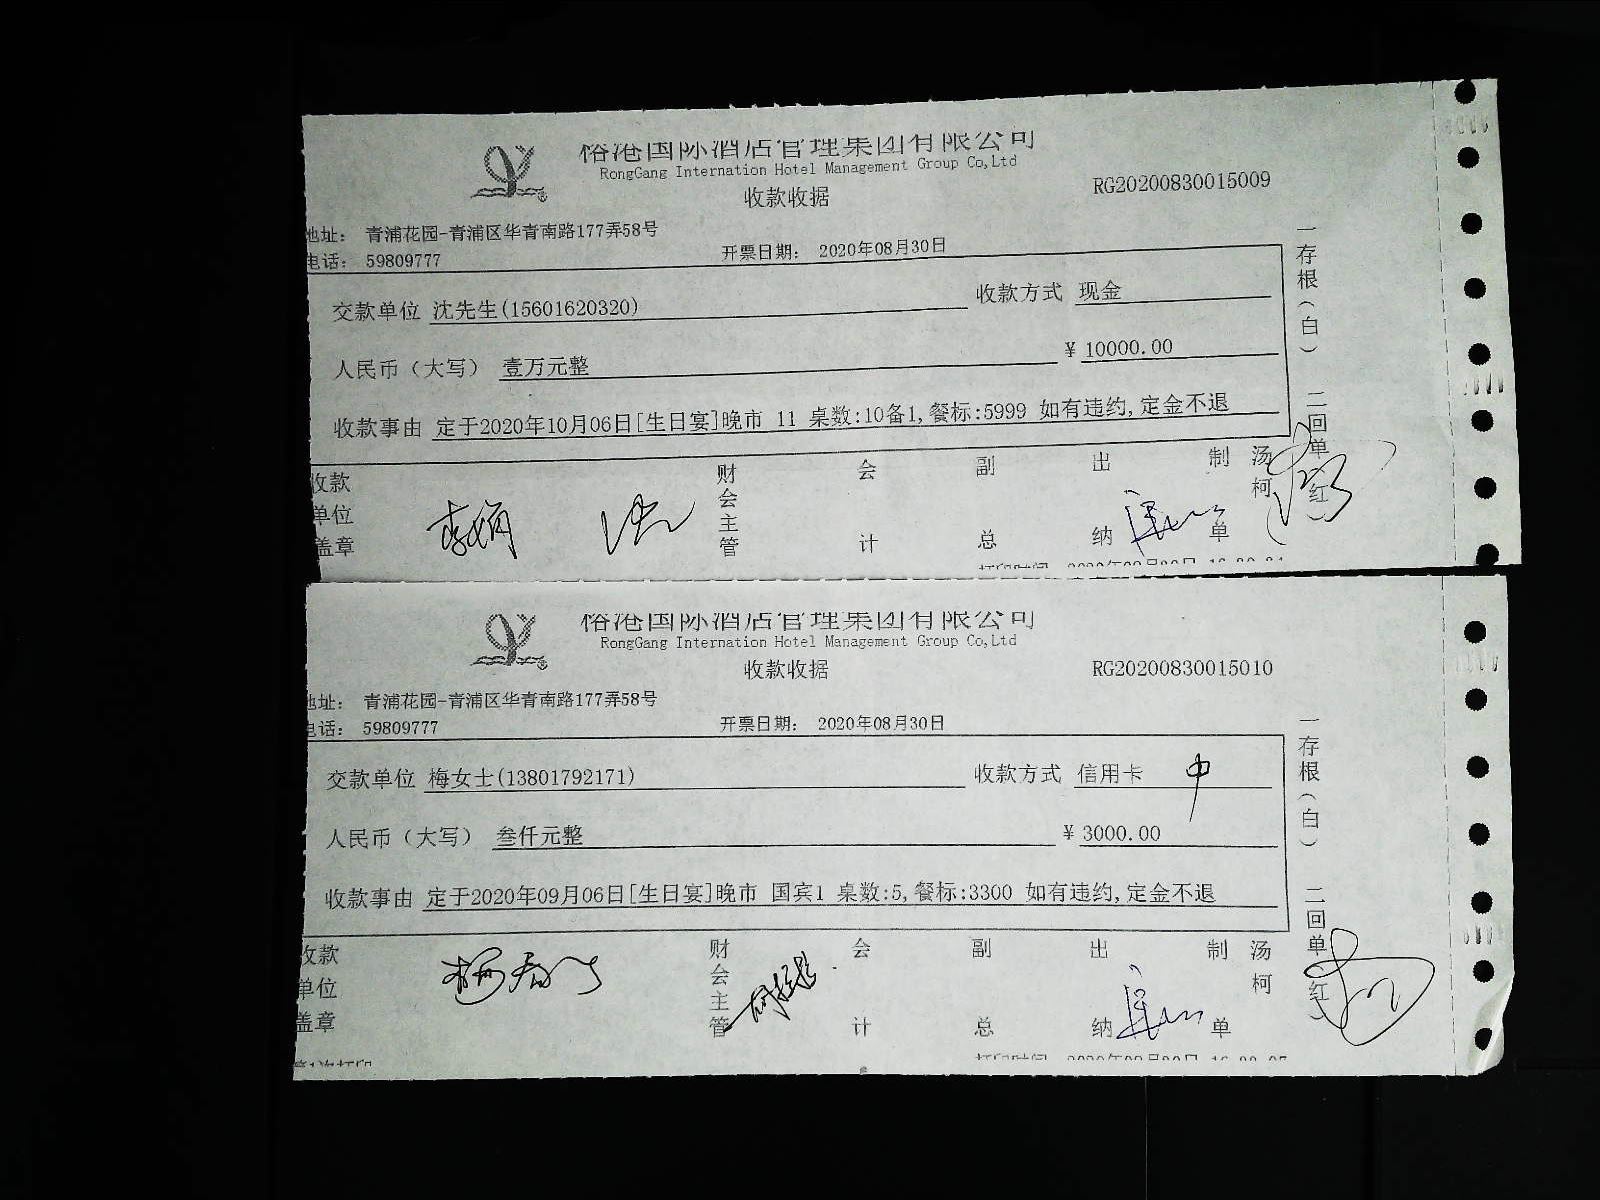 俗港国际酒店管理集团有限公司
RongGang Internation Hotel Management Group Co,Ltd
收款收据
RG20200830015009
地址： 青浦花园-青浦区华青南路177弄58号
电话： 59809777
开票日期： 2020年08月30日
交款单位 沈先生(15601620320)
收款方式 现金
人民币（大写） 壹万元整
¥ 10000.00
收款事由 定于2020年10月06日[生日宴]晚市 11 桌数:10备1,餐标:5999 如有违约,定金不退
收款单位盖章
财会主管
会计
副总
出纳
制单
汤柯
一存根（白） 二回单（红）
俗港国际酒店管理集团有限公司
RongGang Internation Hotel Management Group Co,Ltd
收款收据
RG20200830015010
地址： 青浦花园-青浦区华青南路177弄58号
电话： 59809777
开票日期： 2020年08月30日
交款单位 梅女士(13801792171)
收款方式 信用卡 中
人民币（大写） 叁仟元整
¥ 3000.00
收款事由 定于2020年09月06日[生日宴]晚市 国宾1 桌数:5,餐标:3300 如有违约,定金不退
收款单位盖章
财会主管
会计
副总
出纳
制单
汤柯
一存根（白） 二回单（红）